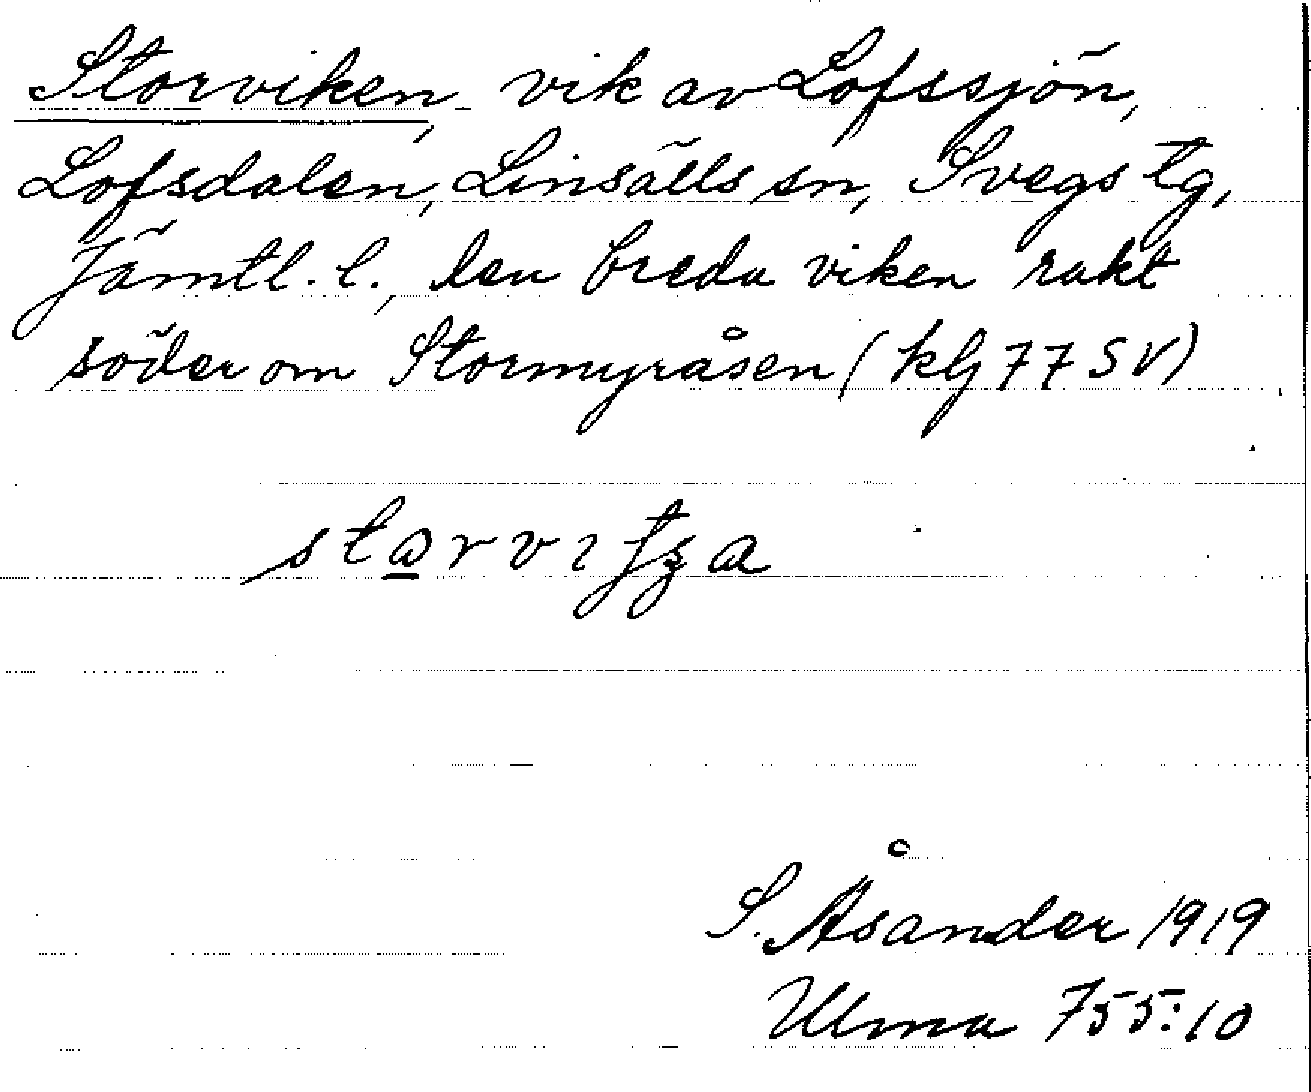 Storviken, vik av Lofssjön,
Lofsdalen, Linsälls sn, Svegs tg,
Jämtl. l., den breda viken rakt
söder om Stormyråsen (kbl 77 SV)
S. Åsander 1919
Ulma 755:10